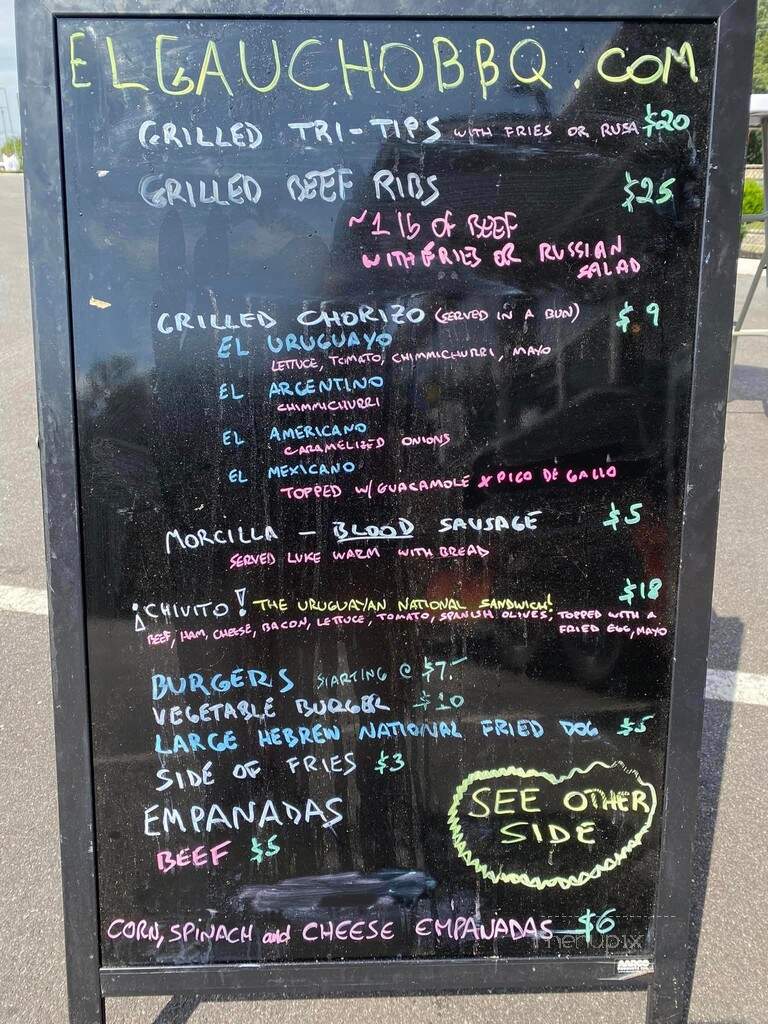 ELGAUCHOBBQ.COM
GRILLED TRI-TIPS WITH FRIES OR RUSA $20
GRILLED BEEF RIBS $25
~1 lb OF BEEF
WITH FRIES OR RUSSIAN
SALAD
GRILLED CHORIZO (SERVED IN A BUN) $9
EL URUGUAYO
LETTUCE, TOMATO, CHIMMICHURRI, MAYO
EL ARGENTINO
CHIMMICHURRI
EL AMERICANO
CARAMELIZED ONIONS
EL MEXICANO
TOPPED W/ GUACAMOLE & PICO DE GALLO
MORCILLA - BLOOD SAUSAGE $5
SERVED LUKE WARM WITH BREAD
$18
¡CHIVITO! THE URUGUAYAN NATIONAL SANDWICH!
BEEF, HAM, CHEESE, BACON, LETTUCE, TOMATO, SPANISH OLIVES, TOPPED WITH A
FRIED EGG, MAYO
BURGERS STARTING @ $7.-
VEGETABLE BURGER $10
LARGE HEBREW NATIONAL FRIED DOG $5
SIDE OF FRIES $3
EMPANADAS
BEEF $5
SEE OTHER
SIDE
CORN, SPINACH and CHEESE EMPANADAS $6
menupix
AARCO